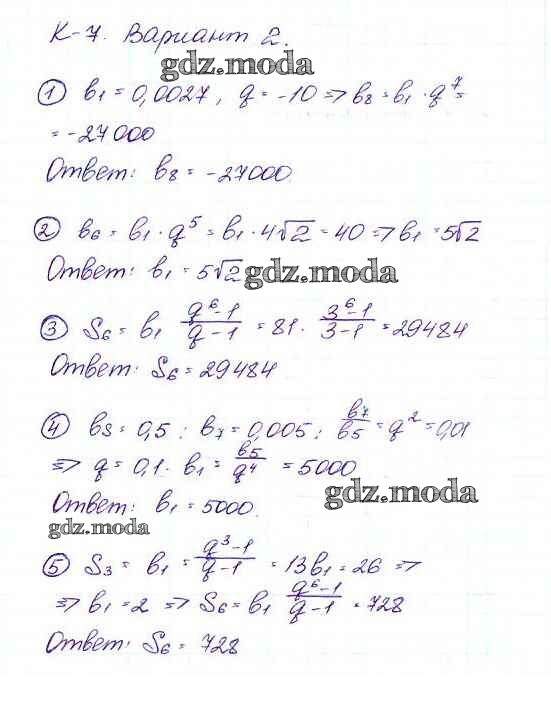 К-7. Вариант 2.
gdz.moda
① b₁ = 0,0027, q = -10 => b₈ = b₁ · q⁷ =
= -27000
Ответ: b₈ = -27000.
② b₆ = b₁ · q⁵ = b₁ · 4√2 = 40 => b₁ = 5√2
Ответ: b₁ = 5√2
gdz.moda
③ S₆ = b₁ (q⁶-1)/(q-1) = 81 · (3⁶-1)/(3-1) = 29484
Ответ: S₆ = 29484
④ b₅ = 0,5 ; b₇ = 0,005 ; b₇/b₅ = q² = 0,01
=> q = 0,1. b₁ = b₅/q⁴ = 5000
Ответ: b₁ = 5000.
gdz.moda
gdz.moda
⑤ S₃ = b₁ = (q³-1)/(q-1) = 13b₁ = 26 =>
=> b₁ = 2 => S₆ = b₁ (q⁶-1)/(q-1) = 728
Ответ: S₆ = 728